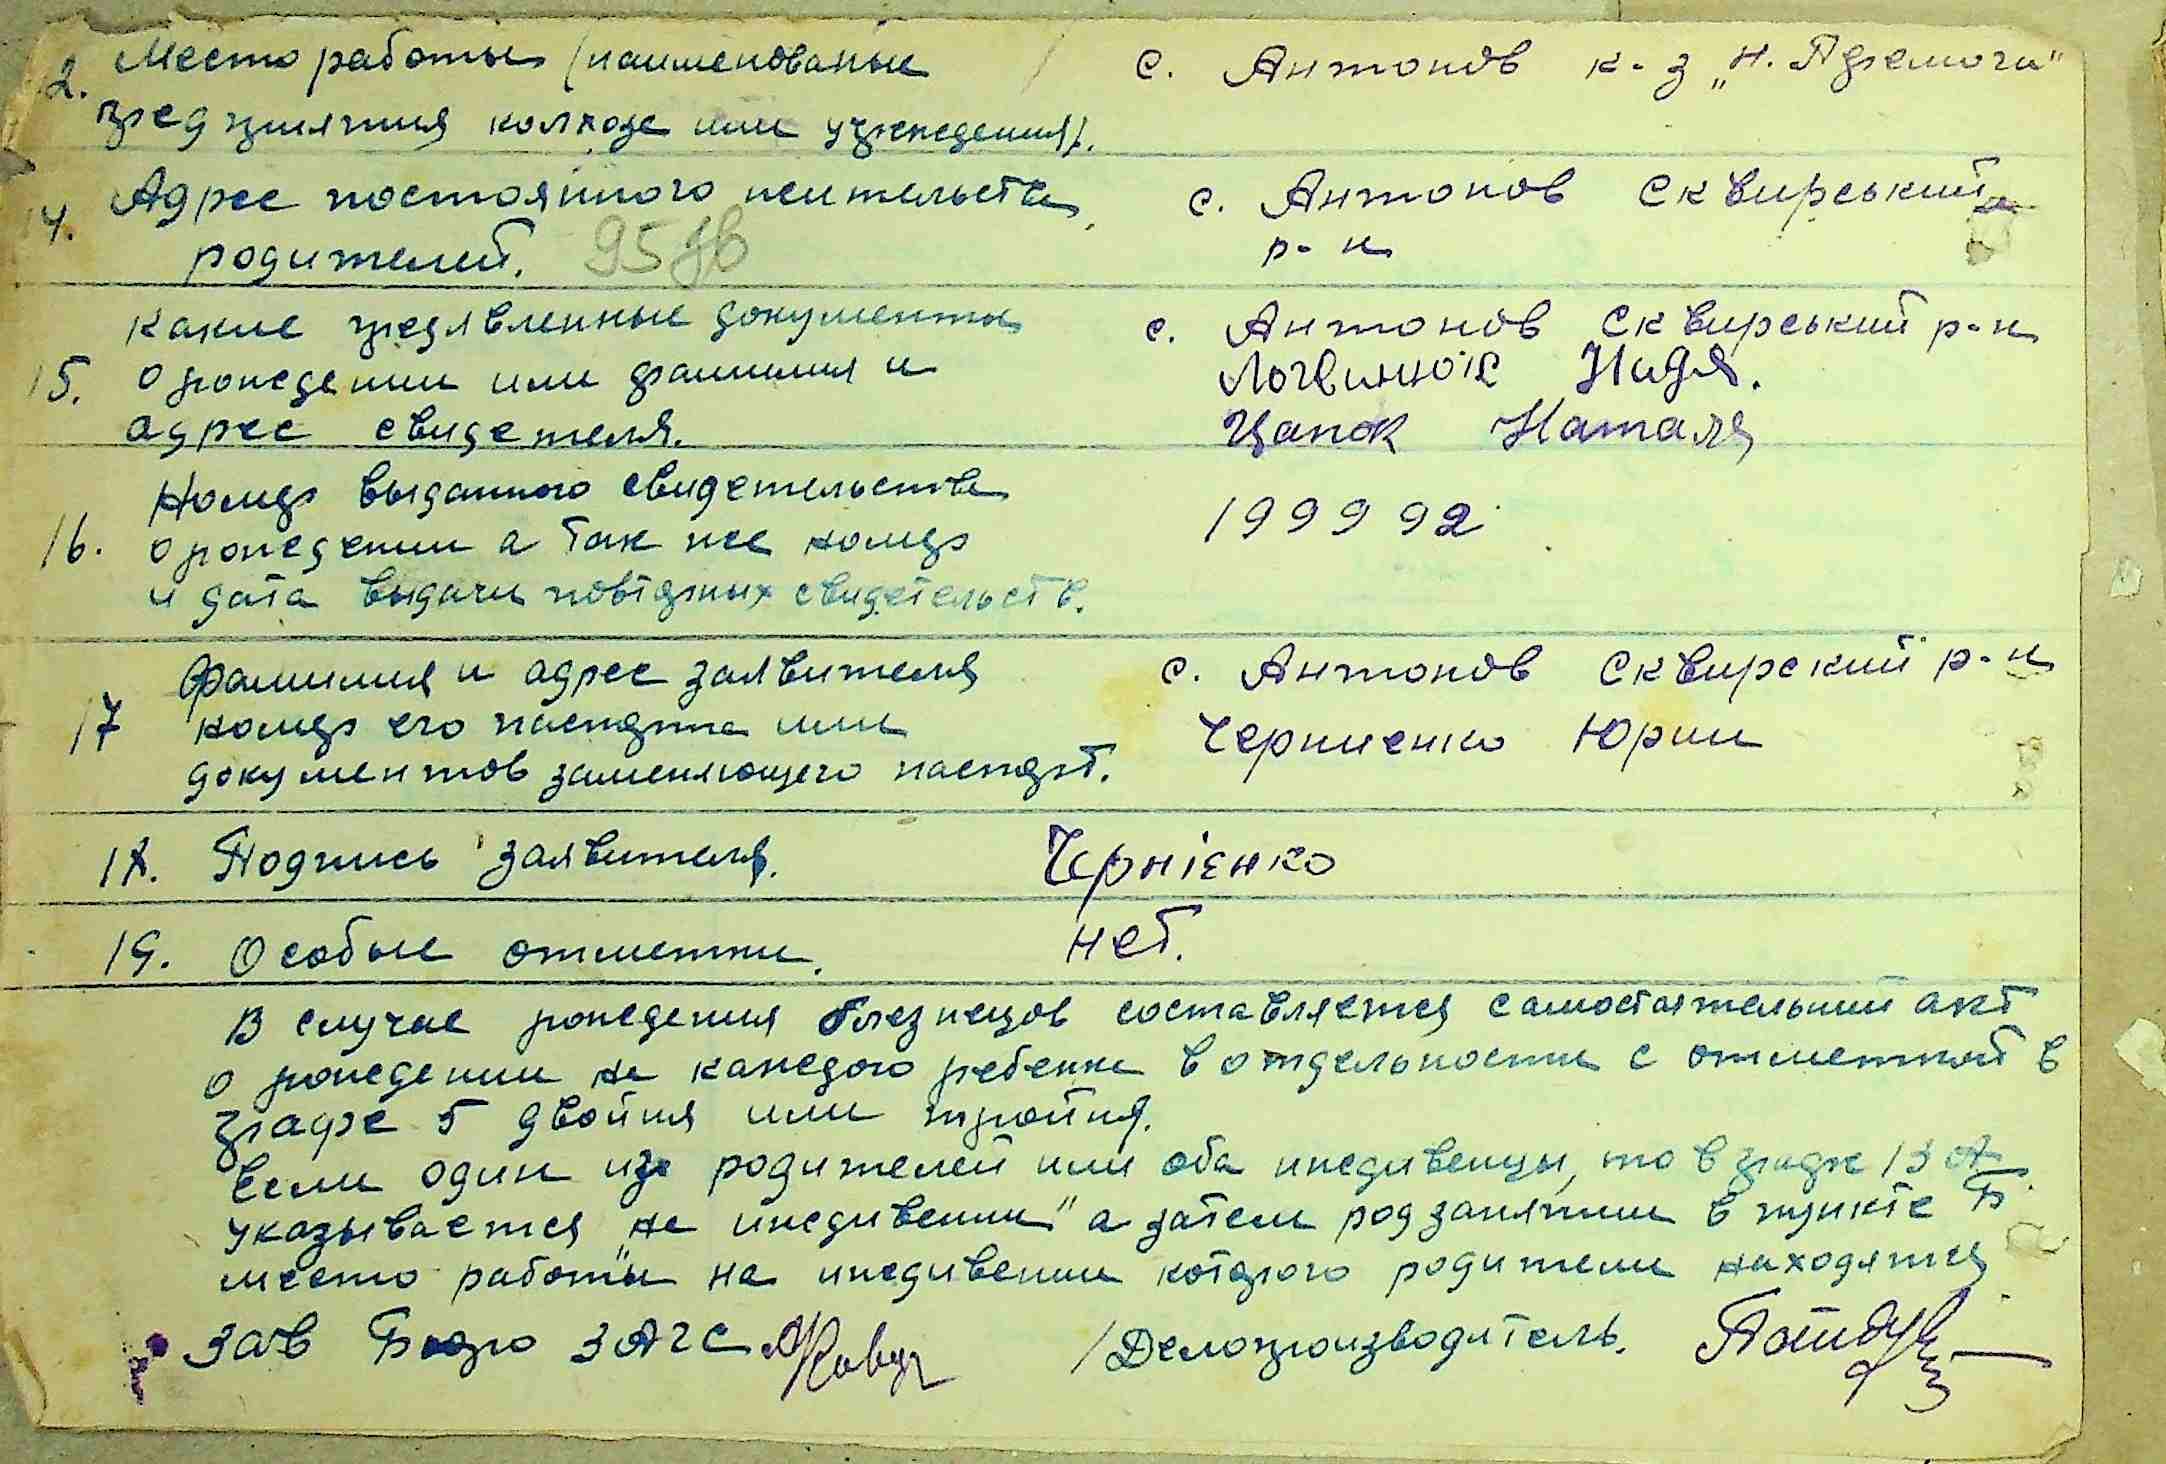 2. Место работы (наименование с. Антонов к-з „Н. Перемоги“
предприятия колхоза или учреждения).
14. Адрес постоянного жительства с. Антонов Сквирський
родителей. 95 р-н
Какие предявленные документы с. Антонов Сквирський р-н
15. о рождении или фамилия и Логвинюк Надя.
адрес свидетеля. Цапок Наталя
Номер выданного свидетельства
16. о рождении а так же номер 199992
и дата выдачи повторных свидетельств.
Фамилия и адрес заявителя с. Антонов Сквирский р-н
17 номер его паспорта или Черниенко Юрий
документов заменяющего паспорт.
18. Подпись заявителя. Чернієнко
19. Особые отметки. нет.
В случае рождения близнецов составляется самостоятельный акт
о рождении на каждого ребенка в отдельности с отметкой в
графе 5 двойня или тройня.
Если один из родителей или оба иждивенцы, то в графе 13 А
указывается „на иждивении“ а затем род занятий в пункте Б
место работы на иждивении которого родители находятся
Зав Бюро ЗАГС /Делопроизводитель.